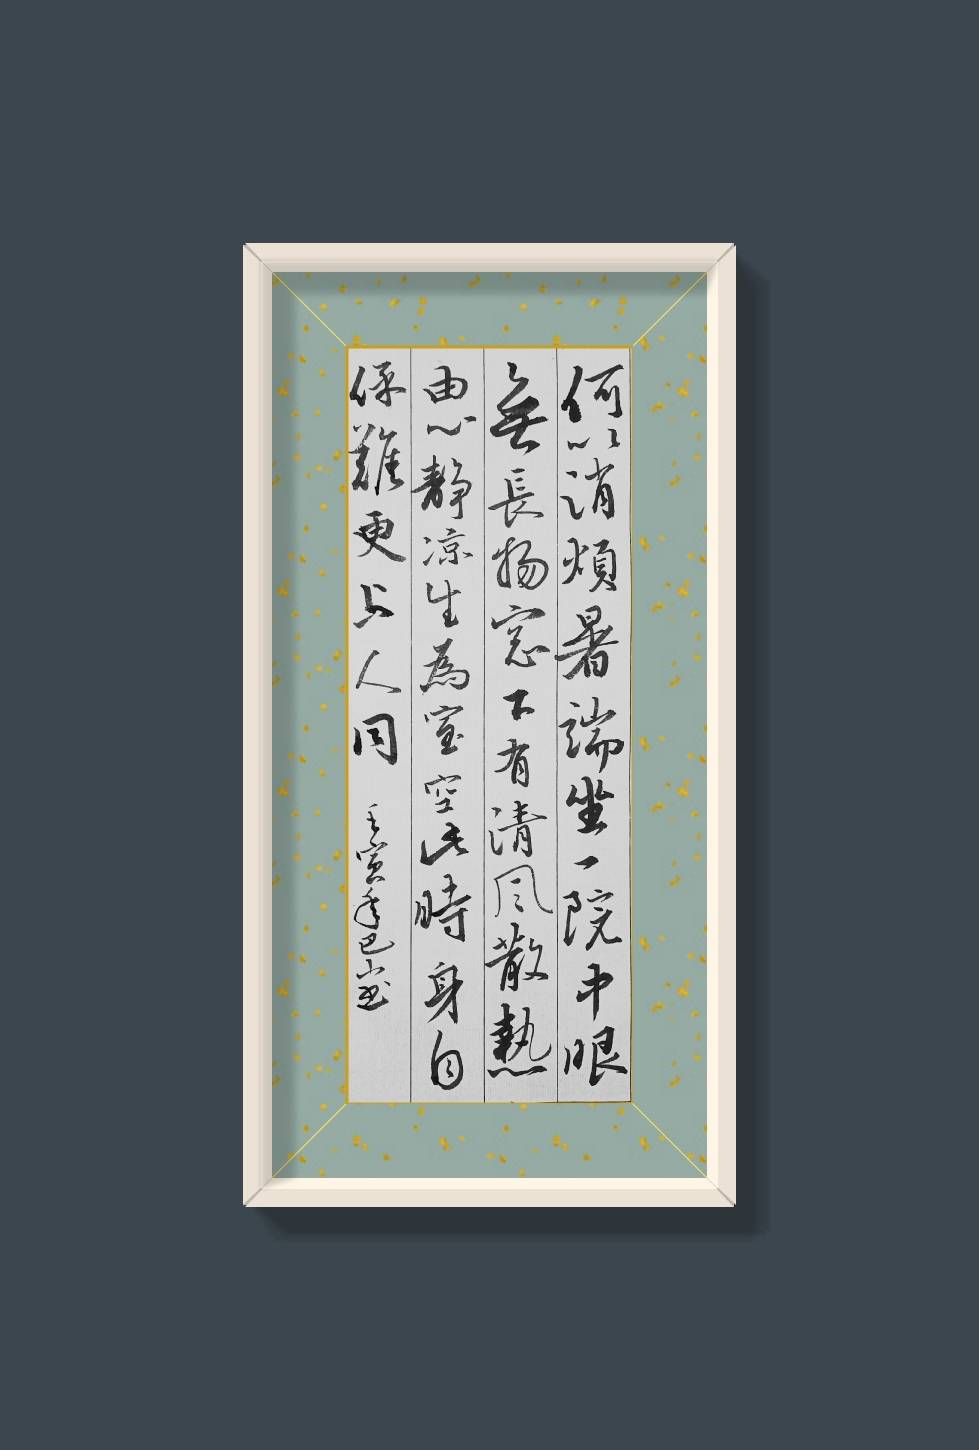 何以消煩暑端坐一院中眼
無長物窓下有清風散熱
由心静凉生為室空此時身自
保難更与人同
壬寅年巴